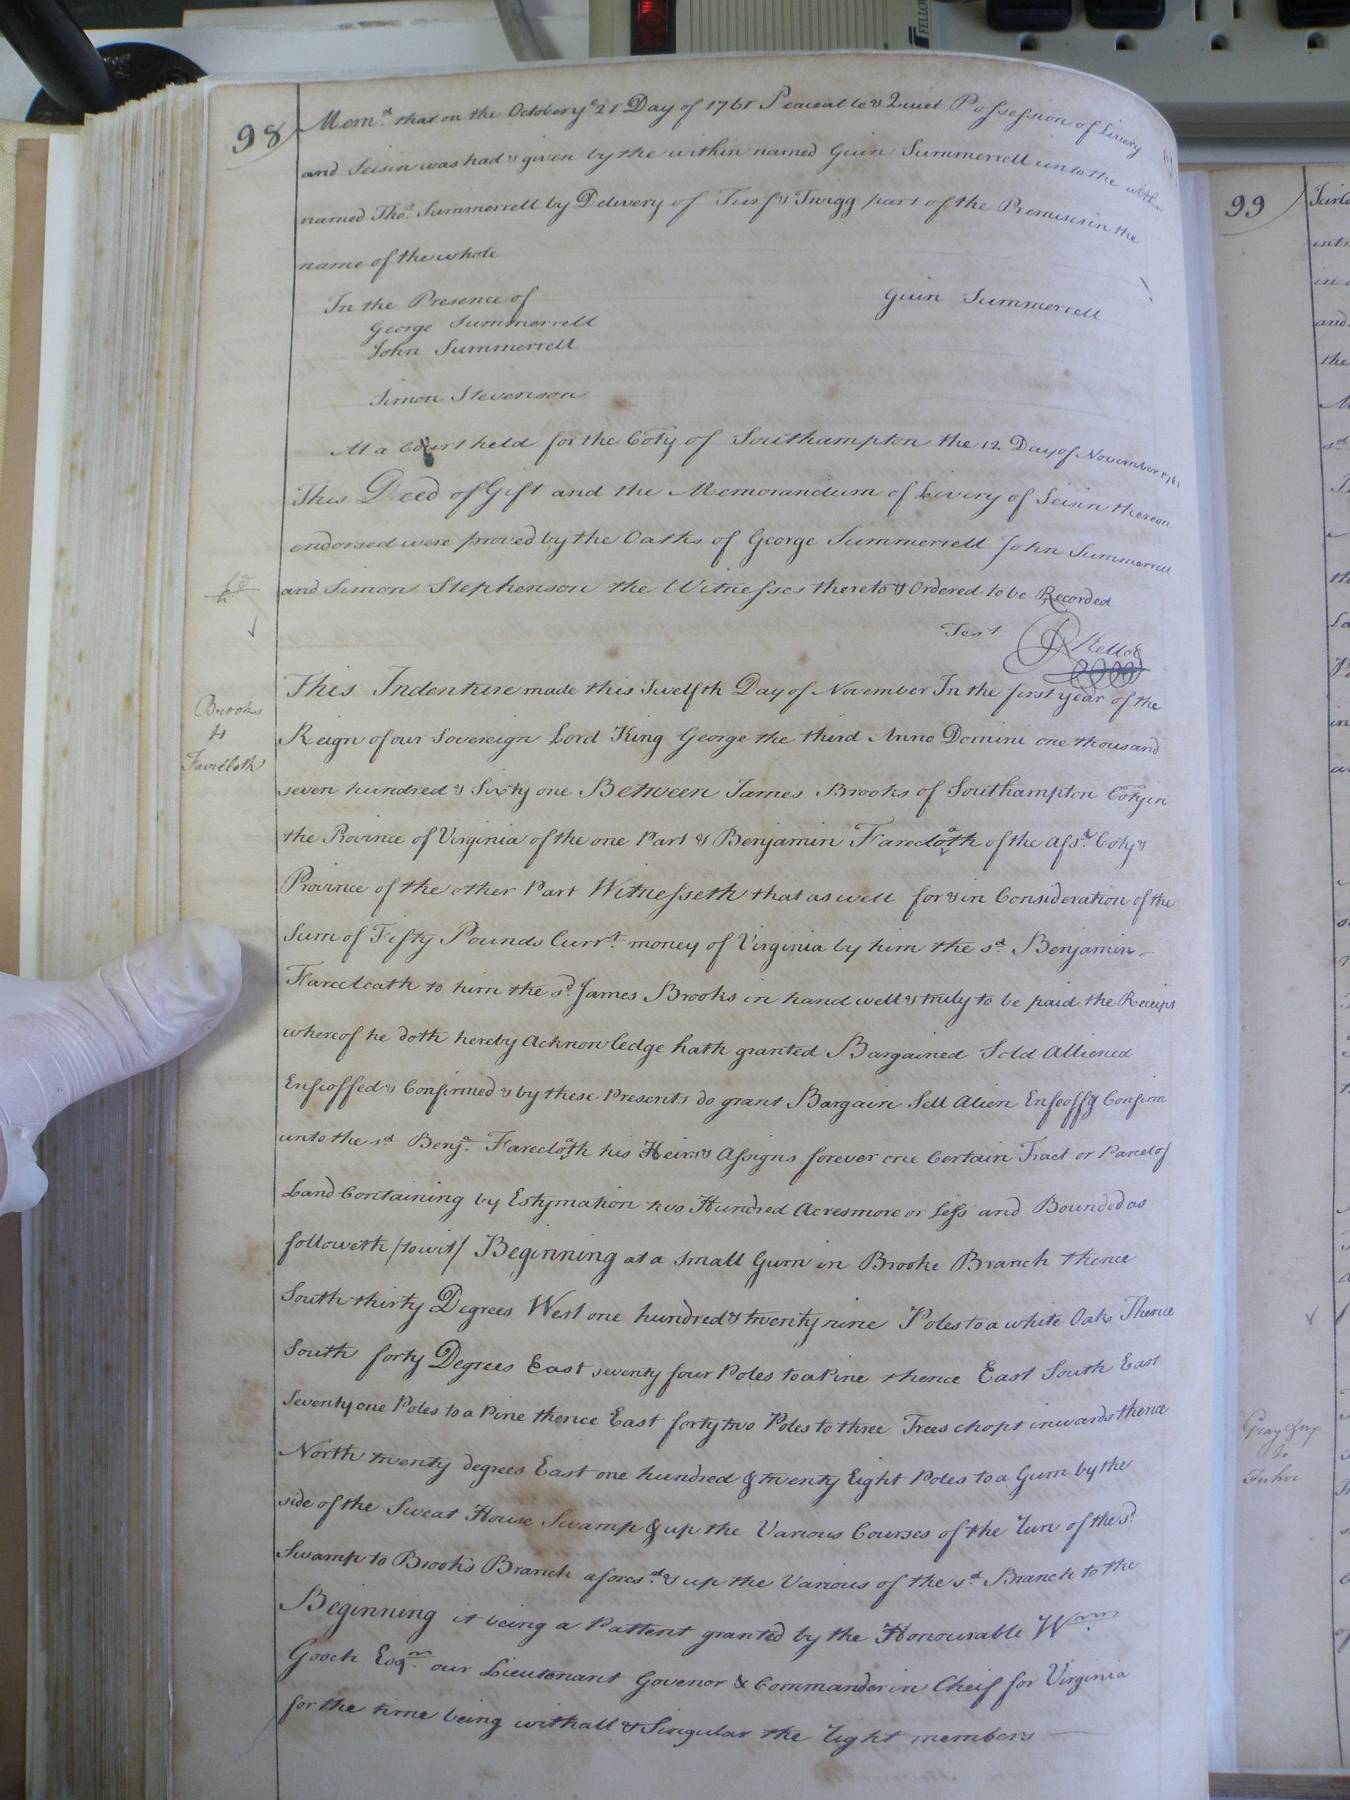 98
Mem.d that on the October ye 21 Day of 1761 Peaceable & Quiet Possession of Livery
and Seisin was had & given by the within named Guin Summerrell unto the within
named Tho.s Summerrell by Delivery of Turf & Twigg part of the Premises in the
name of the whole
In the Presence of
Guin Summerrell
George Summerrell
John Summerrell
Simon Stevenson
At a Court held for the Coty of Southampton the 12 Day of November 1761
This Deed of Gift and the Memorandum of Livery of Seisin thereon
endorsed were proved by the Oaths of George Summerrell John Summerrell
and Simon Stephenson the Witnesses thereto & Ordered to be Recorded
Test
Brooks
to
Faircloth
This Indenture made this Twelfth Day of November In the first year of the
Reign of our Sovereign Lord King George the third Anno Domini one thousand
seven hundred & Sixty one Between James Brooks of Southampton Coty in
the Province of Virginia of the one Part & Benjamin Farecloath of the afs.d Coty &
Province of the other Part Witnesseth that as well for & in Consideration of the
Sum of Fifty Pounds Curr.t money of Virginia by him the s.d Benjamin
Farecloath to him the s.d James Brooks in hand well & truly to be paid the Receipt
whereof he doth hereby Acknowledge hath granted Bargained Sold Alliened
Enfeoffed & Confirmed & by these Presents do grant Bargain Sell Alien Enfeoff & Confirm
unto the s.d Benj.a Farecloath his Heirs & Assigns forever one Certain Tract or Parcel of
Land Containing by Estymation two Hundred Acres more or Less and Bounded as
followeth /towit/ Beginning at a small Gum in Brooke Branch thence
South thirty Degrees West one hundred & twenty nine Poles to a white Oak Thence
South forty Degrees East seventy four Poles to a Pine thence East South East
seventy one Poles to a Pine thence East forty two Poles to three Trees chopt inwards thence
North twenty degrees East one hundred & twenty Eight Poles to a Gum by the
side of the Sweat House Swamp & up the Various Courses of the Run of the s.d
Swamp to Brook's Branch afores.d & up the Various of the s.d Branch to the
Beginning it being a Pattent granted by the Honourable Wm.
Gooch Esq.r our Lieutenant Govenor & Commander in Cheif for Virginia
for the time being withall & Singular the right members
99
and
the
Gray &ux
to